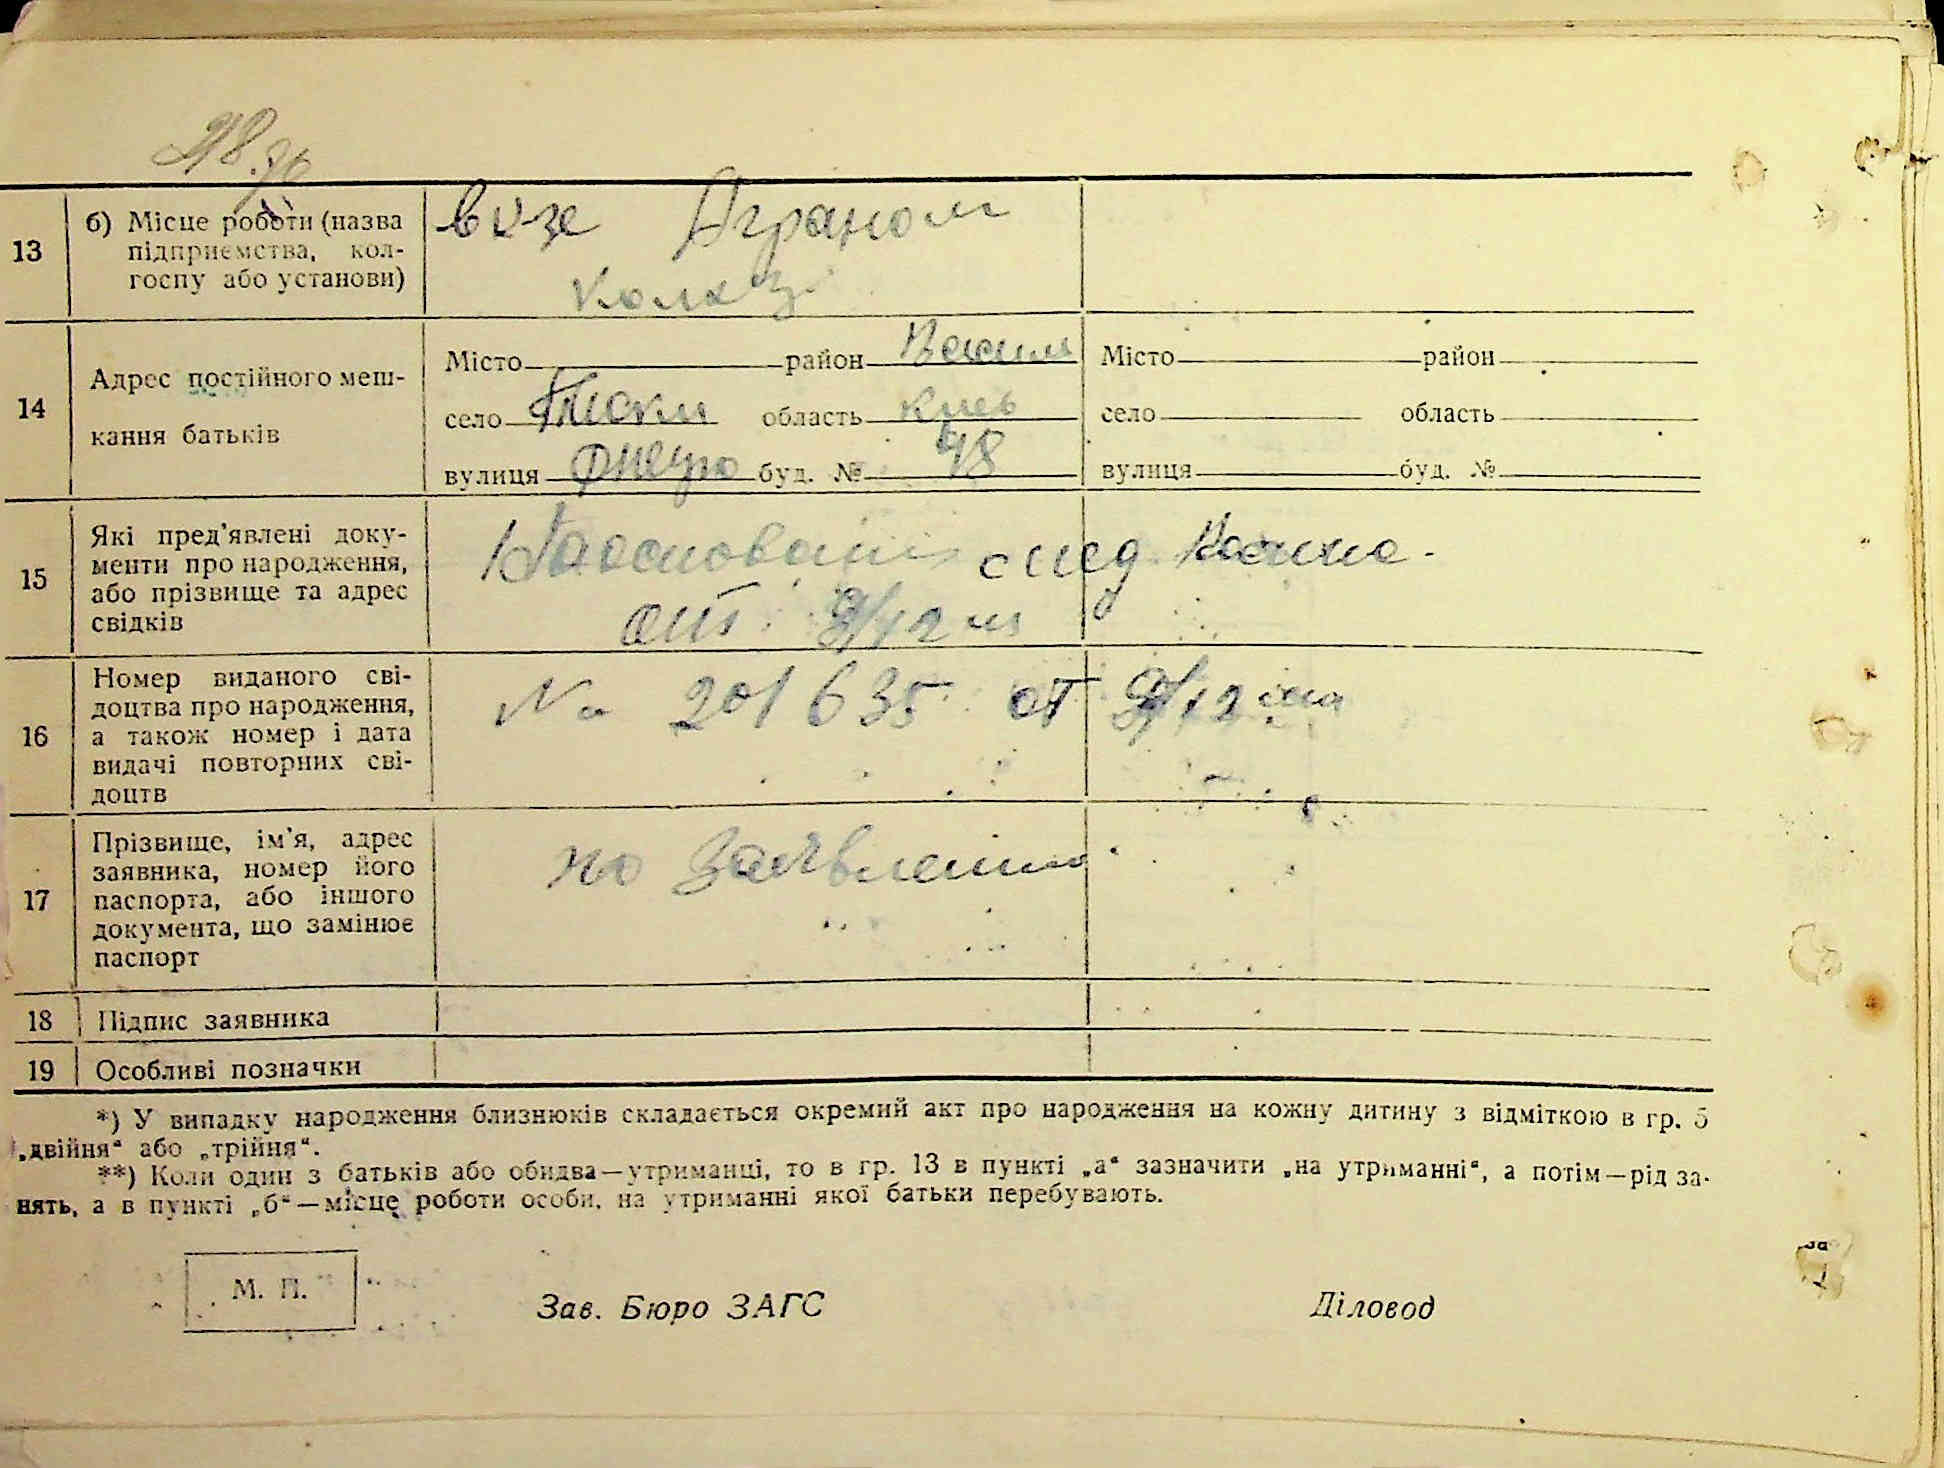 13
б) Місце роботи (назва
підприємства, кол-
госпу або установи)
Аграном
14
Адрес постійного меш-
кання батьків
Місто район
село область Киев
вулиця буд. № 48
Місто район
село область
вулиця буд. №
15
Які пред'явлені доку-
менти про народження,
або прізвище та адрес
свідків
16
Номер виданого сві-
доцтва про народження,
а також номер і дата
видачі повторних сві-
доцтв
№ 201635 от
17
Прізвище, ім'я, адрес
заявника, номер його
паспорта, або іншого
документа, що замінює
паспорт
по Заявлению
18 Підпис заявника
19 Особливі позначки
*) У випадку народження близнюків складається окремий акт про народження на кожну дитину з відміткою в гр. 5
„двійня“ або „трійня“.
**) Коли один з батьків або обидва—утриманці, то в гр. 13 в пункті „а“ зазначити „на утриманні“, а потім—рід за-
нять, а в пункті „б“—місце роботи особи, на утриманні якої батьки перебувають.
М. П.
Зав. Бюро ЗАГС Діловод